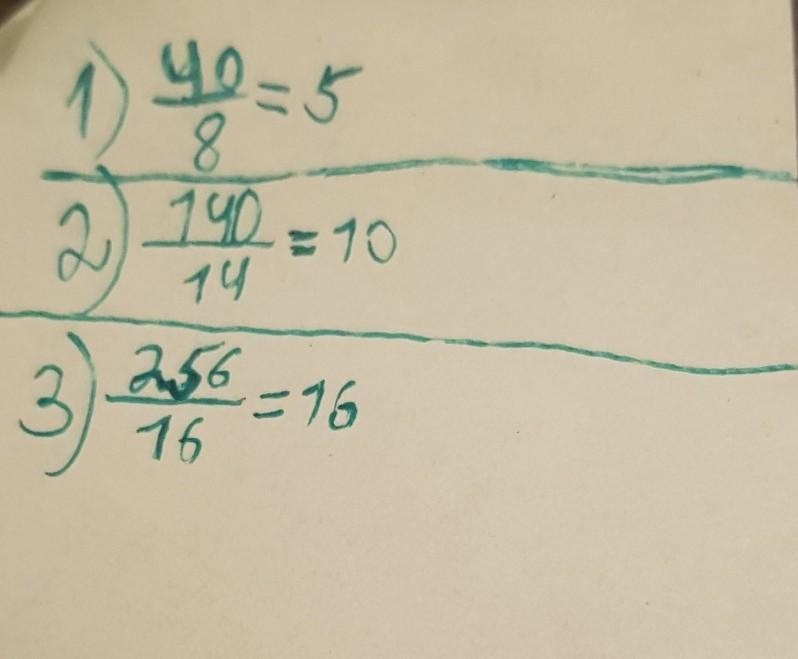 1) 40/8 = 5
2) 140/14 = 10
3) 256/16 = 16